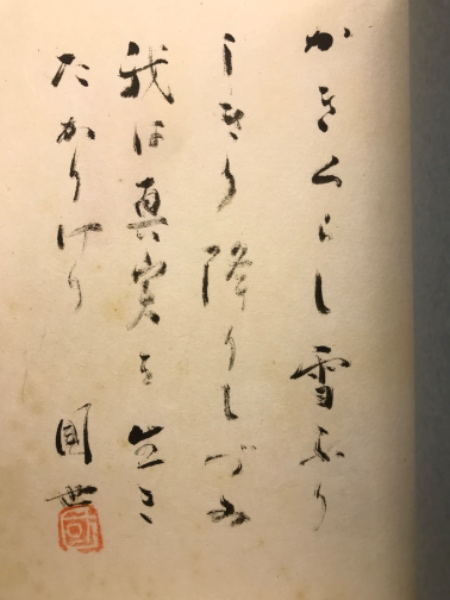 かきくらし雪ふり
しきり降りしづみ
我は真実を生き
たかりけり 国世